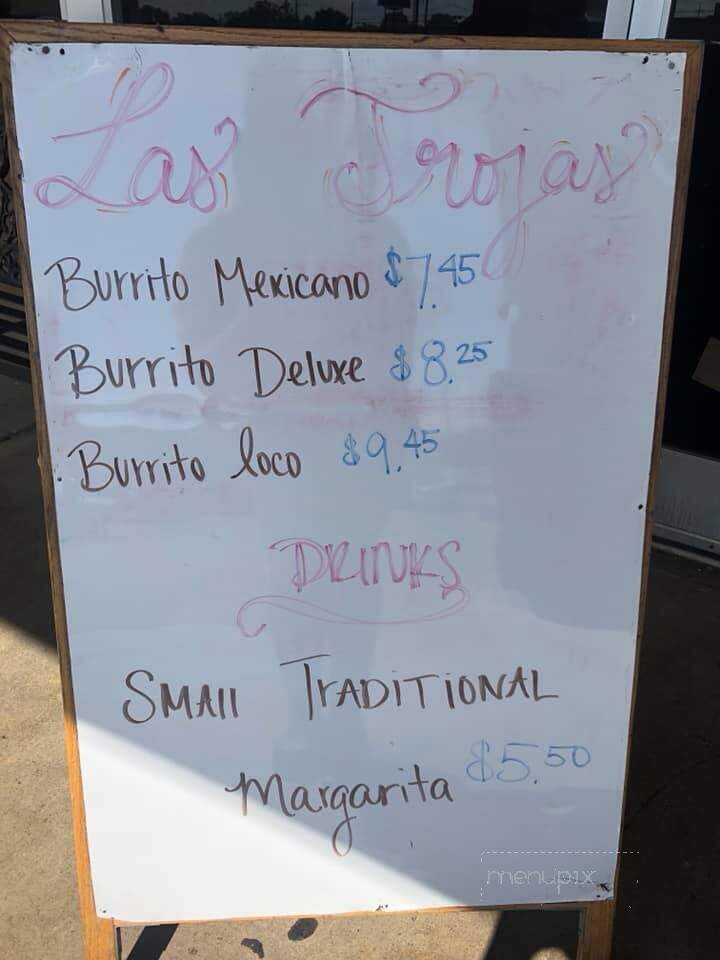 Las Trojas
Burrito Mexicano $7.45
Burrito Deluxe $8.25
Burrito loco $9.45
DRINKS
SMAll TrADITiONAL
Margarita $5.50
menupix